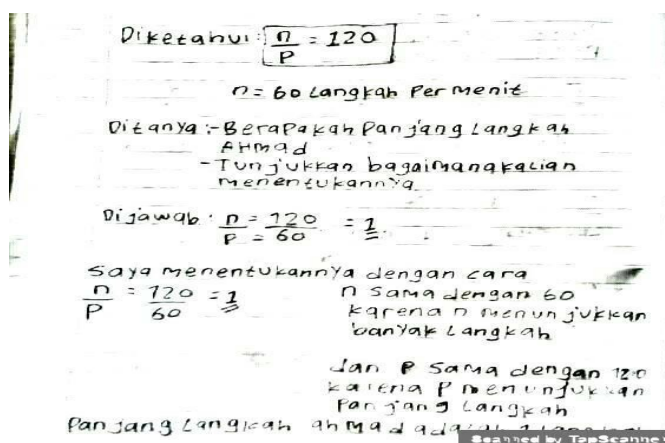 Diketahui: n/P = 120
n = 60 Langkah Per menit
Ditanya: - Berapakah Panjang Langkah
AHmad
- Tunjukkan bagaimanakalian
menentukannya
Dijawab: n/P = 120/60 = 1
Saya menentukannya dengan cara
n/P = 120/60 = 1
n sama dengan 60
karena n menunjukkan
banyak Langkah
dan P sama dengan 120
karena P menunjukkan
Panjang Langkah
Panjang Langkah ahmad adalah 1
Scanned by TapScanner